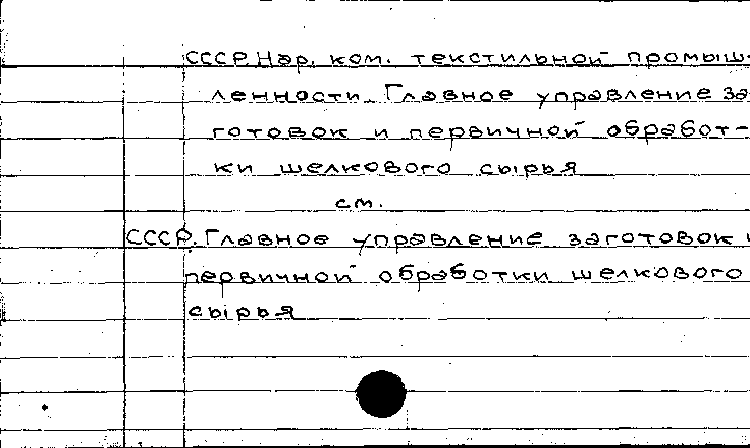 СССР. Нар. ком. текстильной промыш-
ленности. Главное управление за-
готовок и первичной обработ-
ки шелкового сырья
см.
СССР. Главное управление заготовок и
первичной обработки шелкового
сырья